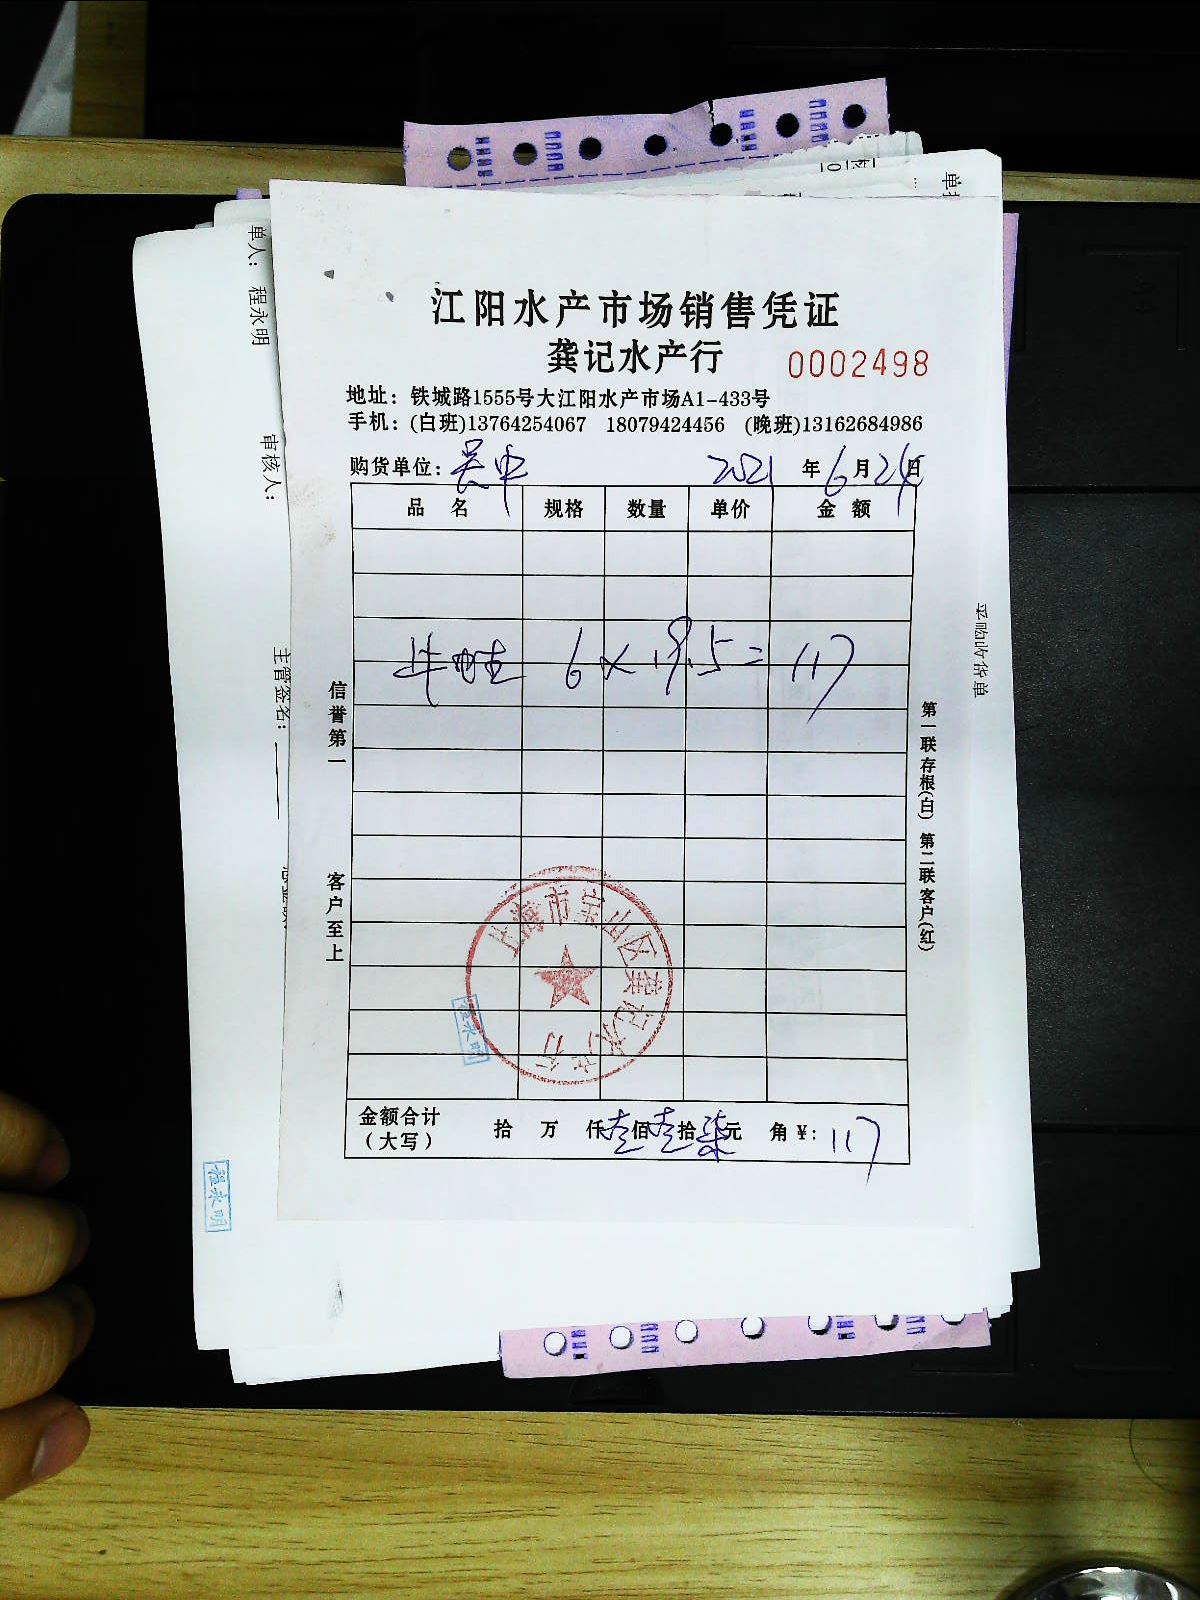 单人： 程永明
审核人：
主管签名：
采购收货单
江阳水产市场销售凭证
龚记水产行 0002498
地址：铁城路1555号大江阳水产市场A1-433号
手机：(白班)13764254067 18079424456 (晚班)13162684986
购货单位：吴中 2021年6月24日
品名 规格 数量 单价 金额
牛蛙 6×19.5=117
信誉第一 客户至上
第一联存根(白) 第二联客户(红)
上海市宝山区龚记水产行
程永明
金额合计
(大写)
拾 万 仟壹佰壹拾柒元 角 ¥: 117
程永明